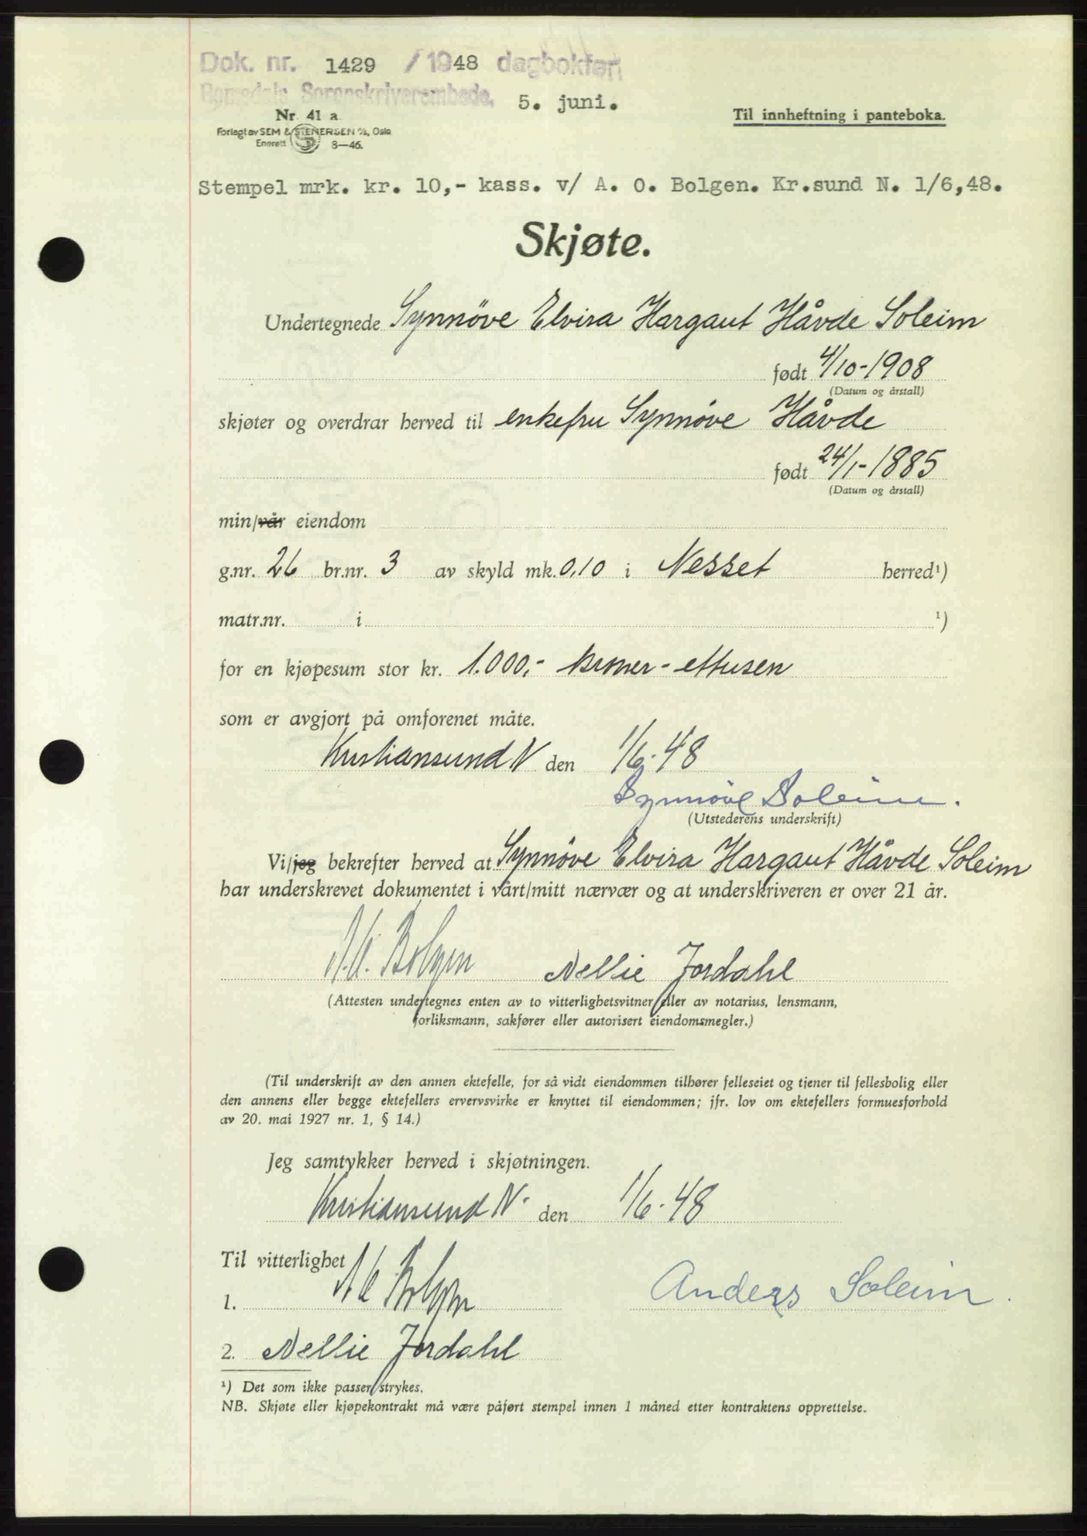 Dok. nr. 1429 /1948 dagbokført
Romsdals Sorenskriverembede, 5. juni.
Nr. 41 a
Til innheftning i panteboka.
Forlagt av SEM & STENERSEN A/S, Oslo
Enerett 8—46.
Stempel mrk. kr. 10,- kass. v/ A. O. Bolgen. Kr.sund N. 1/6,48.
Skjøte.
Undertegnede Synnøve Elvira Hargaut Håvde Soleim
født 4/10-1908
(Datum og årstall)
skjøter og overdrar herved til enkefru Synnøve Håvde
født 24/1-1885
(Datum og årstall)
min/vår eiendom
g.nr. 26 br.nr. 3 av skyld mk. 0,10 i Nesset herred¹)
matr.nr. i ¹)
for en kjøpesum stor kr. 1.000,- kroner-ettusen
som er avgjort på omforenet måte.
Kristiansund N den 1/6-48
Synnøve Soleim.
(Utstederens underskrift)
Vi/jeg bekrefter herved at Synnøve Elvira Hargaut Håvde Soleim
har underskrevet dokumentet i vårt/mitt nærvær og at underskriveren er over 21 år.
A.O. Bolgen Nellie Jordahl
(Attesten undertegnes enten av to vitterlighetsvitner eller av notarius, lensmann,
forliksmann, sakfører eller autorisert eiendomsmegler.)
(Til underskrift av den annen ektefelle, for så vidt eiendommen tilhører felleseiet og tjener til fellesbolig eller
den annens eller begge ektefellers ervervsvirke er knyttet til eiendommen; jfr. lov om ektefellers formuesforhold
av 20. mai 1927 nr. 1, § 14.)
Jeg samtykker herved i skjøtningen.
Kristiansund N. den 1/6-48
Til vitterlighet
1. A O Bolgen Anders Soleim.
2. Nellie Jordahl
¹) Det som ikke passer strykes.
NB. Skjøte eller kjøpekontrakt må være påført stempel innen 1 måned etter kontraktens opprettelse.